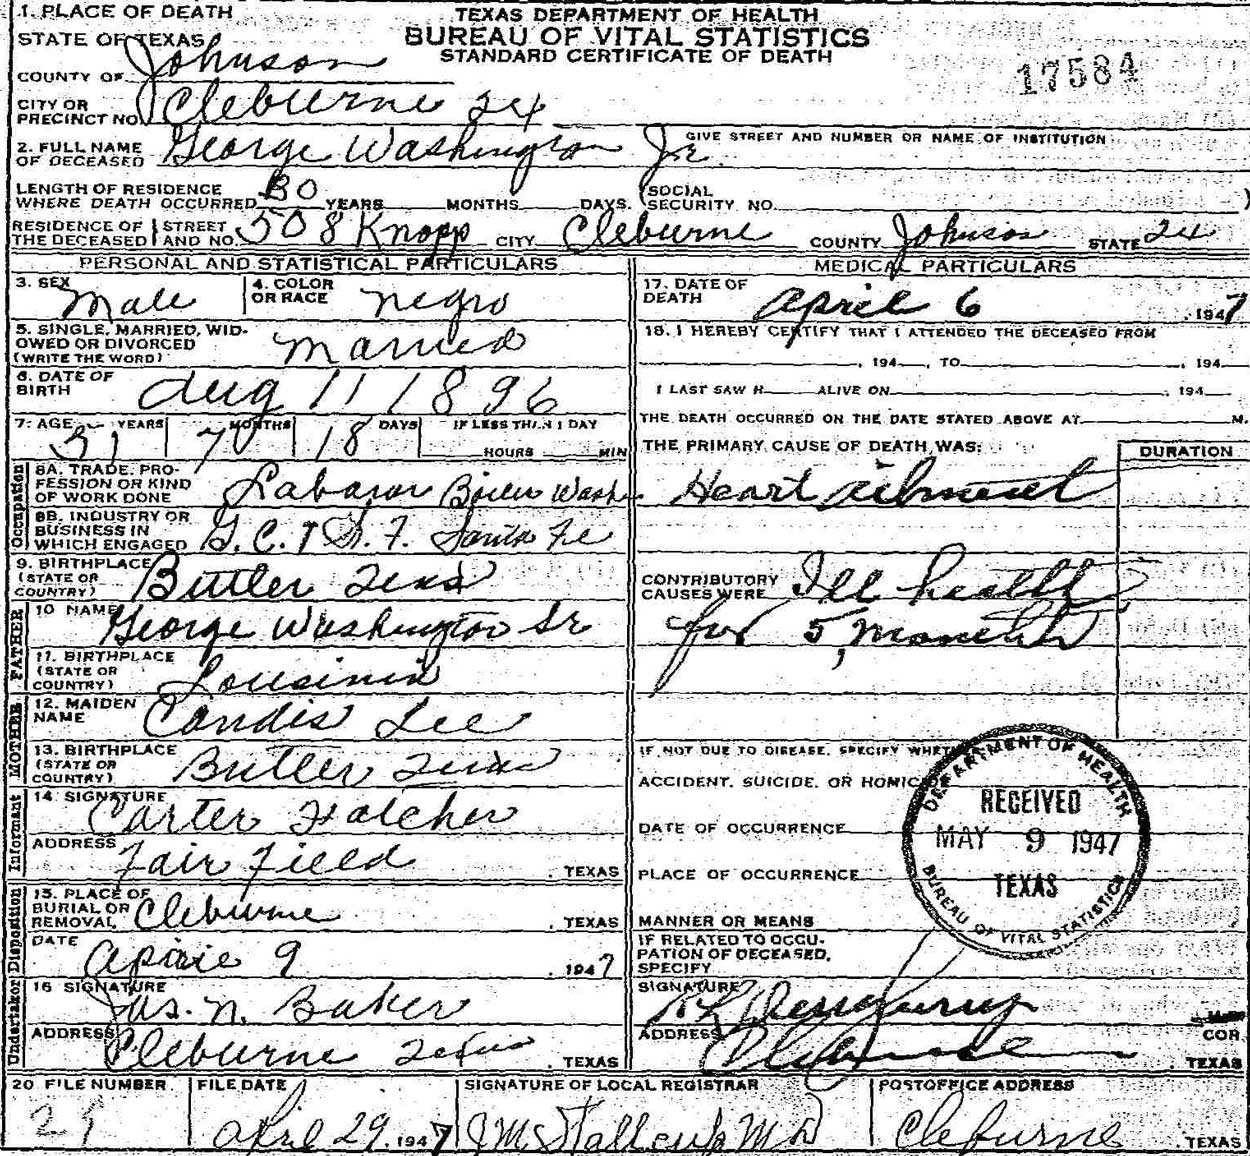 1. PLACE OF DEATH
TEXAS DEPARTMENT OF HEALTH
BUREAU OF VITAL STATISTICS
STANDARD CERTIFICATE OF DEATH
17584
STATE OF TEXAS
COUNTY OF Johnson
CITY OR PRECINCT NO. Cleburne Tex
GIVE STREET AND NUMBER OR NAME OF INSTITUTION
2. FULL NAME OF DECEASED George Washington Jr
LENGTH OF RESIDENCE WHERE DEATH OCCURRED 30 YEARS MONTHS DAYS. (SOCIAL SECURITY NO. )
RESIDENCE OF THE DECEASED STREET AND NO. 508 Knopp CITY Cleburne COUNTY Johnson STATE Tex
PERSONAL AND STATISTICAL PARTICULARS
3. SEX Male 4. COLOR OR RACE negro
5. SINGLE, MARRIED, WIDOWED OR DIVORCED (WRITE THE WORD) Married
6. DATE OF BIRTH Aug 11 1896
7. AGE 51 YEARS 7 MONTHS 18 DAYS IF LESS THAN 1 DAY HOURS MIN
Occupation
8A. TRADE, PROFESSION OR KIND OF WORK DONE Labaror Boiler Wash
8B. INDUSTRY OR BUSINESS IN WHICH ENGAGED G. C. & S. F. Santa Fe
9. BIRTHPLACE (STATE OR COUNTRY) Butler Texas
FATHER
10 NAME George Washington Sr
11. BIRTHPLACE (STATE OR COUNTRY) Lousinia
MOTHER
12. MAIDEN NAME Candis Lee
13. BIRTHPLACE (STATE OR COUNTRY) Butler Texas
Informant
14. SIGNATURE Carter Hatcher
ADDRESS Fair Field, TEXAS
Disposition
15. PLACE OF BURIAL OR REMOVAL Cleburne, TEXAS
DATE April 9, 1947
Undertaker
16 SIGNATURE Jas. N. Baker
ADDRESS Cleburne Texas, TEXAS
MEDICAL PARTICULARS
17. DATE OF DEATH April 6, 1947
18. I HEREBY CERTIFY THAT I ATTENDED THE DECEASED FROM
, 194 , TO , 194
I LAST SAW H ALIVE ON , 194
THE DEATH OCCURRED ON THE DATE STATED ABOVE AT M.
THE PRIMARY CAUSE OF DEATH WAS: DURATION
Heart ailment
CONTRIBUTORY CAUSES WERE Ill health
for 5, months
IF NOT DUE TO DISEASE, SPECIFY WHETHER
ACCIDENT, SUICIDE, OR HOMICIDE
DATE OF OCCURRENCE
PLACE OF OCCURRENCE
MANNER OR MEANS
IF RELATED TO OCCUPATION OF DECEASED, SPECIFY
DEPARTMENT OF HEALTH
RECEIVED
MAY 9 1947
TEXAS
BUREAU OF VITAL STATISTICS
SIGNATURE
COR
ADDRESS Cleburne, TEXAS
20 FILE NUMBER FILE DATE SIGNATURE OF LOCAL REGISTRAR POSTOFFICE ADDRESS
April 29, 1947 J M Stallcup M D Cleburne, TEXAS